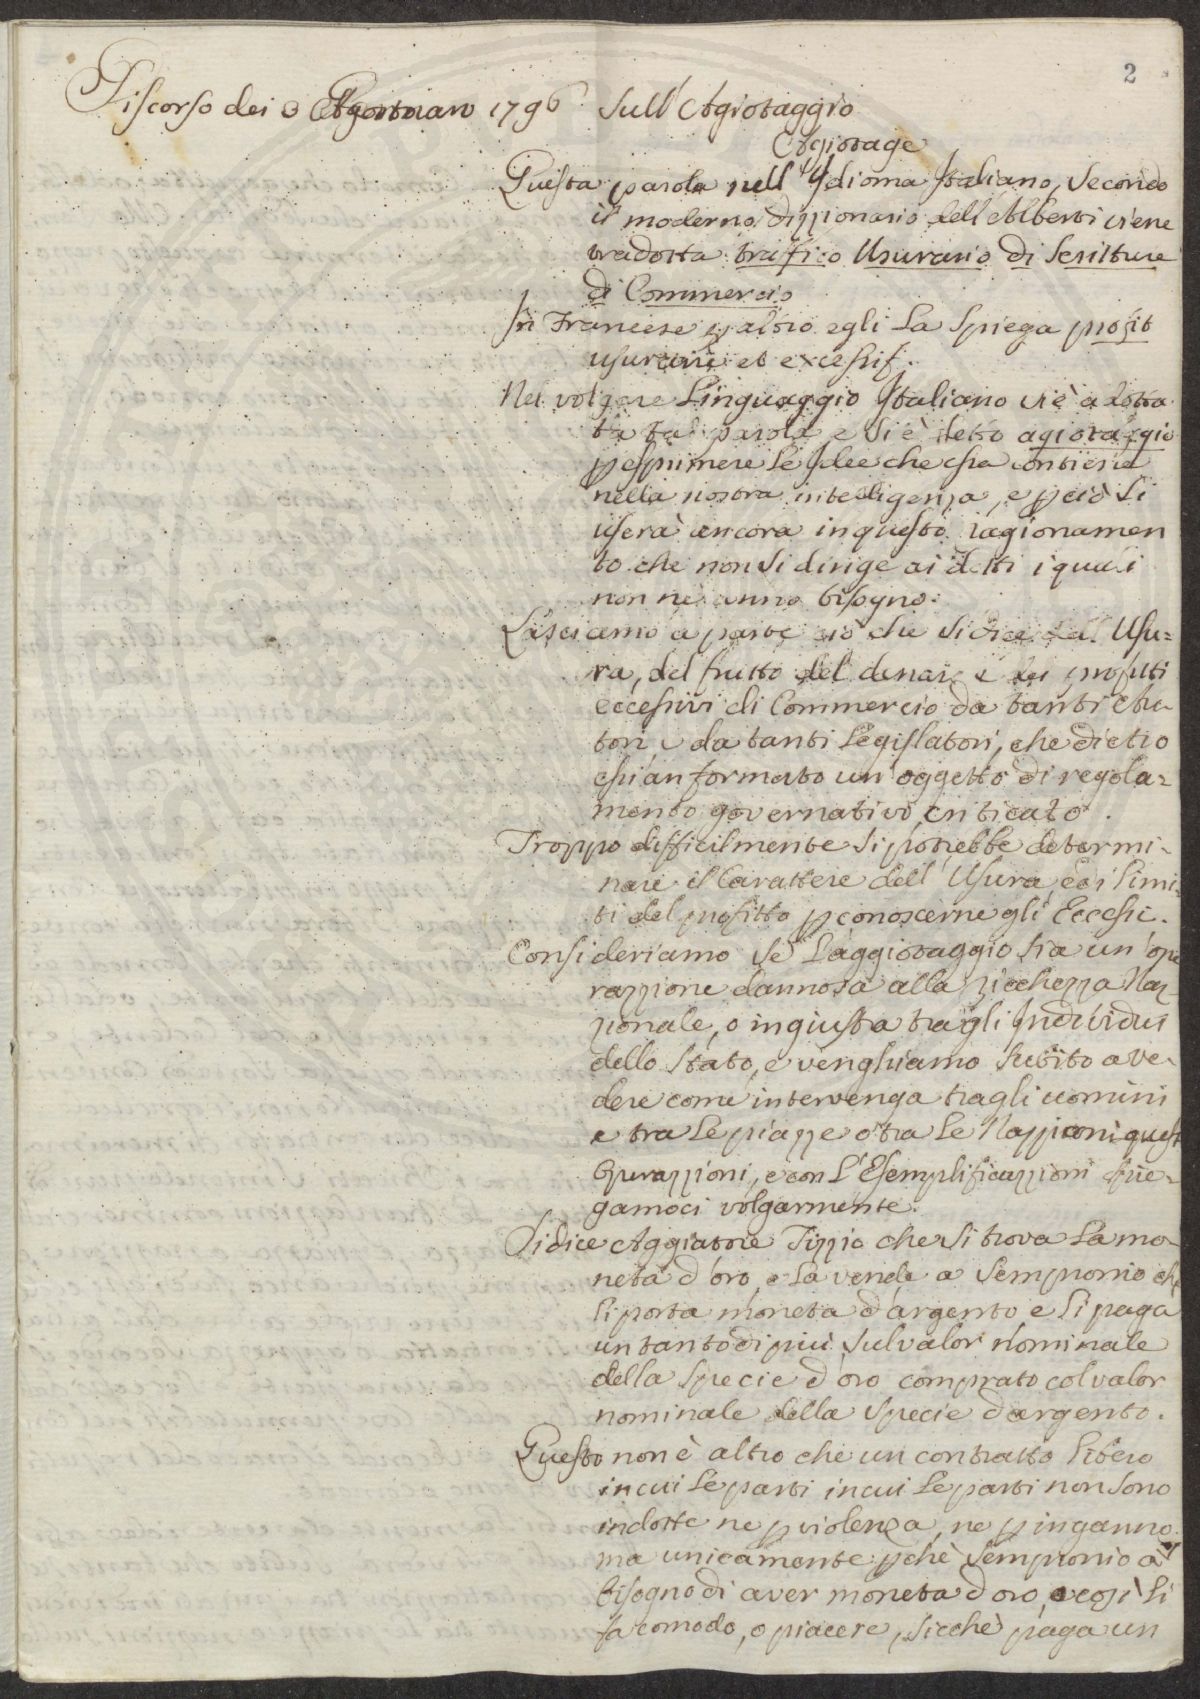 2
Discorso dei 3 1796 Sull' Agiotaggio
Agiotage
Questa parola nell' Ydioma Italiano, secondo
il moderno dizzionario dell'Alberti viene
tradotta traffico Usurario di Scritture
di Commercio
In Francese p altro egli la spiega profit
usuraire et excessif.
Nel volgare Linguaggio Italiano si è adotta
ta tal parola, e si è detto agiotaggio
p esprimere le Idee che essa contiene
nella nostra intelligenza, e pciò si
userà ancora in questo ragionamen
to che non si dirige ai dotti i quali
non ne anno bisogno.
Lasciamo a parte ciò che si dice dell' Usu=
ra, del frutto del denaro e dei profitti
eccessivi di Commercio da tanti Au-
tori, e da tanti Legislatori, che dietro
essi an formato un' oggetto di regola=
mento governativo criticato.
Troppo difficilmente si potrebbe determi-
nare il Carattere dell' Usura, ed i limi=
ti del profitto p conoscerne gli Eccessi.
Consideriamo se L'aggiotaggio sia un' ope
razzione dannosa alla ricchezza Naz-
zionale, o ingiusta tra gli Individui
dello Stato, e venghiamo subito a ve-
dere come intervenga tra gli uomini
e tra le piazze o tra le Nazzioni queste
Operazzioni, e con L'Esemplificazzioni spie-
gamoci volgarmente.
Si dice Aggiatore Tizzio che si trova la mo-
neta d'oro, e la vende a Sempronio che
li porta moneta d'argento e li paga
un tanto di più sul valor nominale
della specie d'oro comprato col valor
nominale della specie d'argento.
Questo non è altro che un contratto libero
in cui le parti in cui le parti non sono
indotte ne p violenza, ne p inganno,
ma unicamente pchè Sempronio à
bisogno di aver moneta d'oro, e così li
fa comodo, o piacere, sicchè paga un